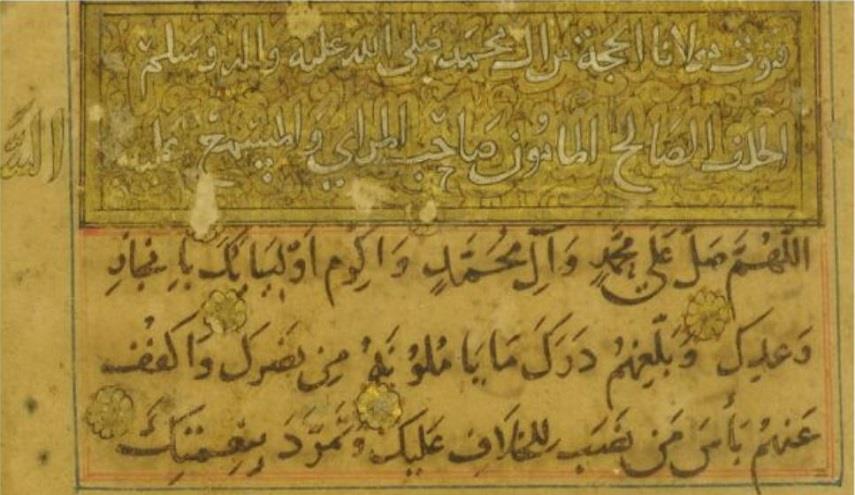 قنوت مولانا الحجة من ال محمد صلى الله عليه واله وسلم
الخلف الصالح المامون صاحب المراي والمسمع عليه
اللَّهُمَّ صَلِّ عَلَى مُحَمَّدٍ وَآلِ مُحَمَّدٍ وَاكْرِم اَوْلِيَائِكَ بِاِنْجَازِ
وَعْدِكَ وَبَلِّغْهُمْ دَرَكَ مَا يَامُلُوْنَهُ مِن نَصْرِكَ وَاكْفُفْ
عَنهُمْ بَأْسَ مَن نَصَبَ الخِلَافَ عَلَيْكَ وَتَمَرَّدَ بِنِعْمَتِكَ